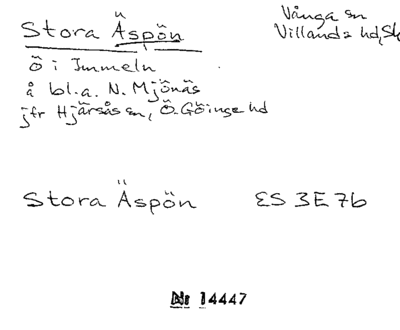 Stora Äspön
Vånga sn
Villands hd, Sk
ö i Immeln
å bl.a. N. Mjönäs
jfr Hjärsås sn, Ö. Göinge hd
Stora Äspön ES 3E7b
Nr 14447